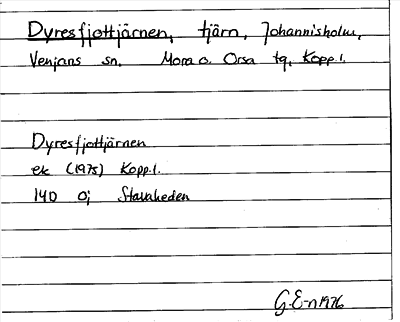 Dyresfjottjärnen, tjärn, Johannisholm,
Venjans sn. Mora o. Orsa tg, Kopp.l.
Dyresfjottjärnen
ek (1975) Kopp.l.
14D 0j Stavaheden
G.E-n 1976